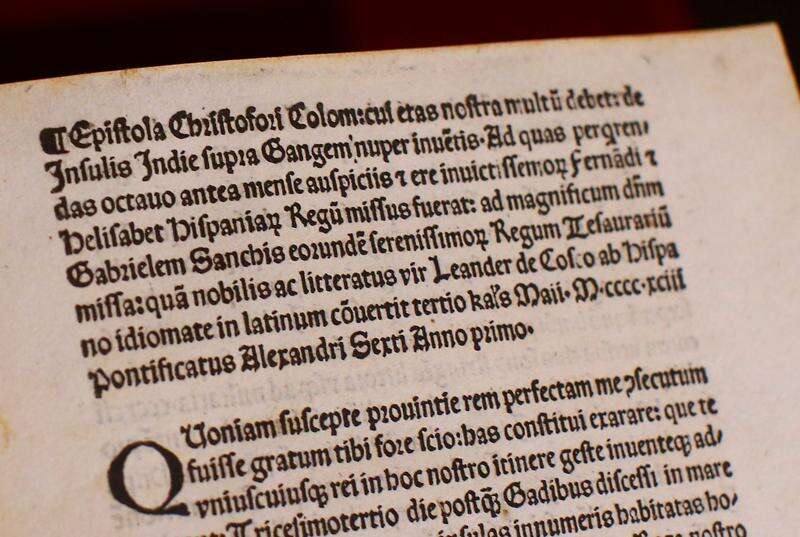 ¶ Epistola Christofori Colom: cui etas nostra multū debet: de
Insulis Indie supra Gangem nuper inuētis. Ad quas perqren/
das octauo antea mense auspiciis ⁊ ere inuictissemoꝝ Fernādi ⁊
Helisabet Hispaniaꝝ Regū missus fuerat: ad magnificum dn̄m
Gabrielem Sanchis eorundē serenissimoꝝ Regum Tesaurariū
missa: quā nobilis ac litteratus vir Leander de Cosco ab Hispa
no idiomate in latinum cōuertit tertio kal's Maii. M.cccc.xciii
Pontificatus Alexandri Sexti Anno primo.
QUoniam suscepte prouintie rem perfectam me ↄsecutum
fuisse gratum tibi fore scio: has constitui exarare: que te
vniuscuiusqꝫ rei in hoc nostro itinere geste inuenteqꝫ ad/
Tricesimotertio die postqꝫ̄ Gadibus discessi in mare
insulas innumeris habitatas ho/
nostro